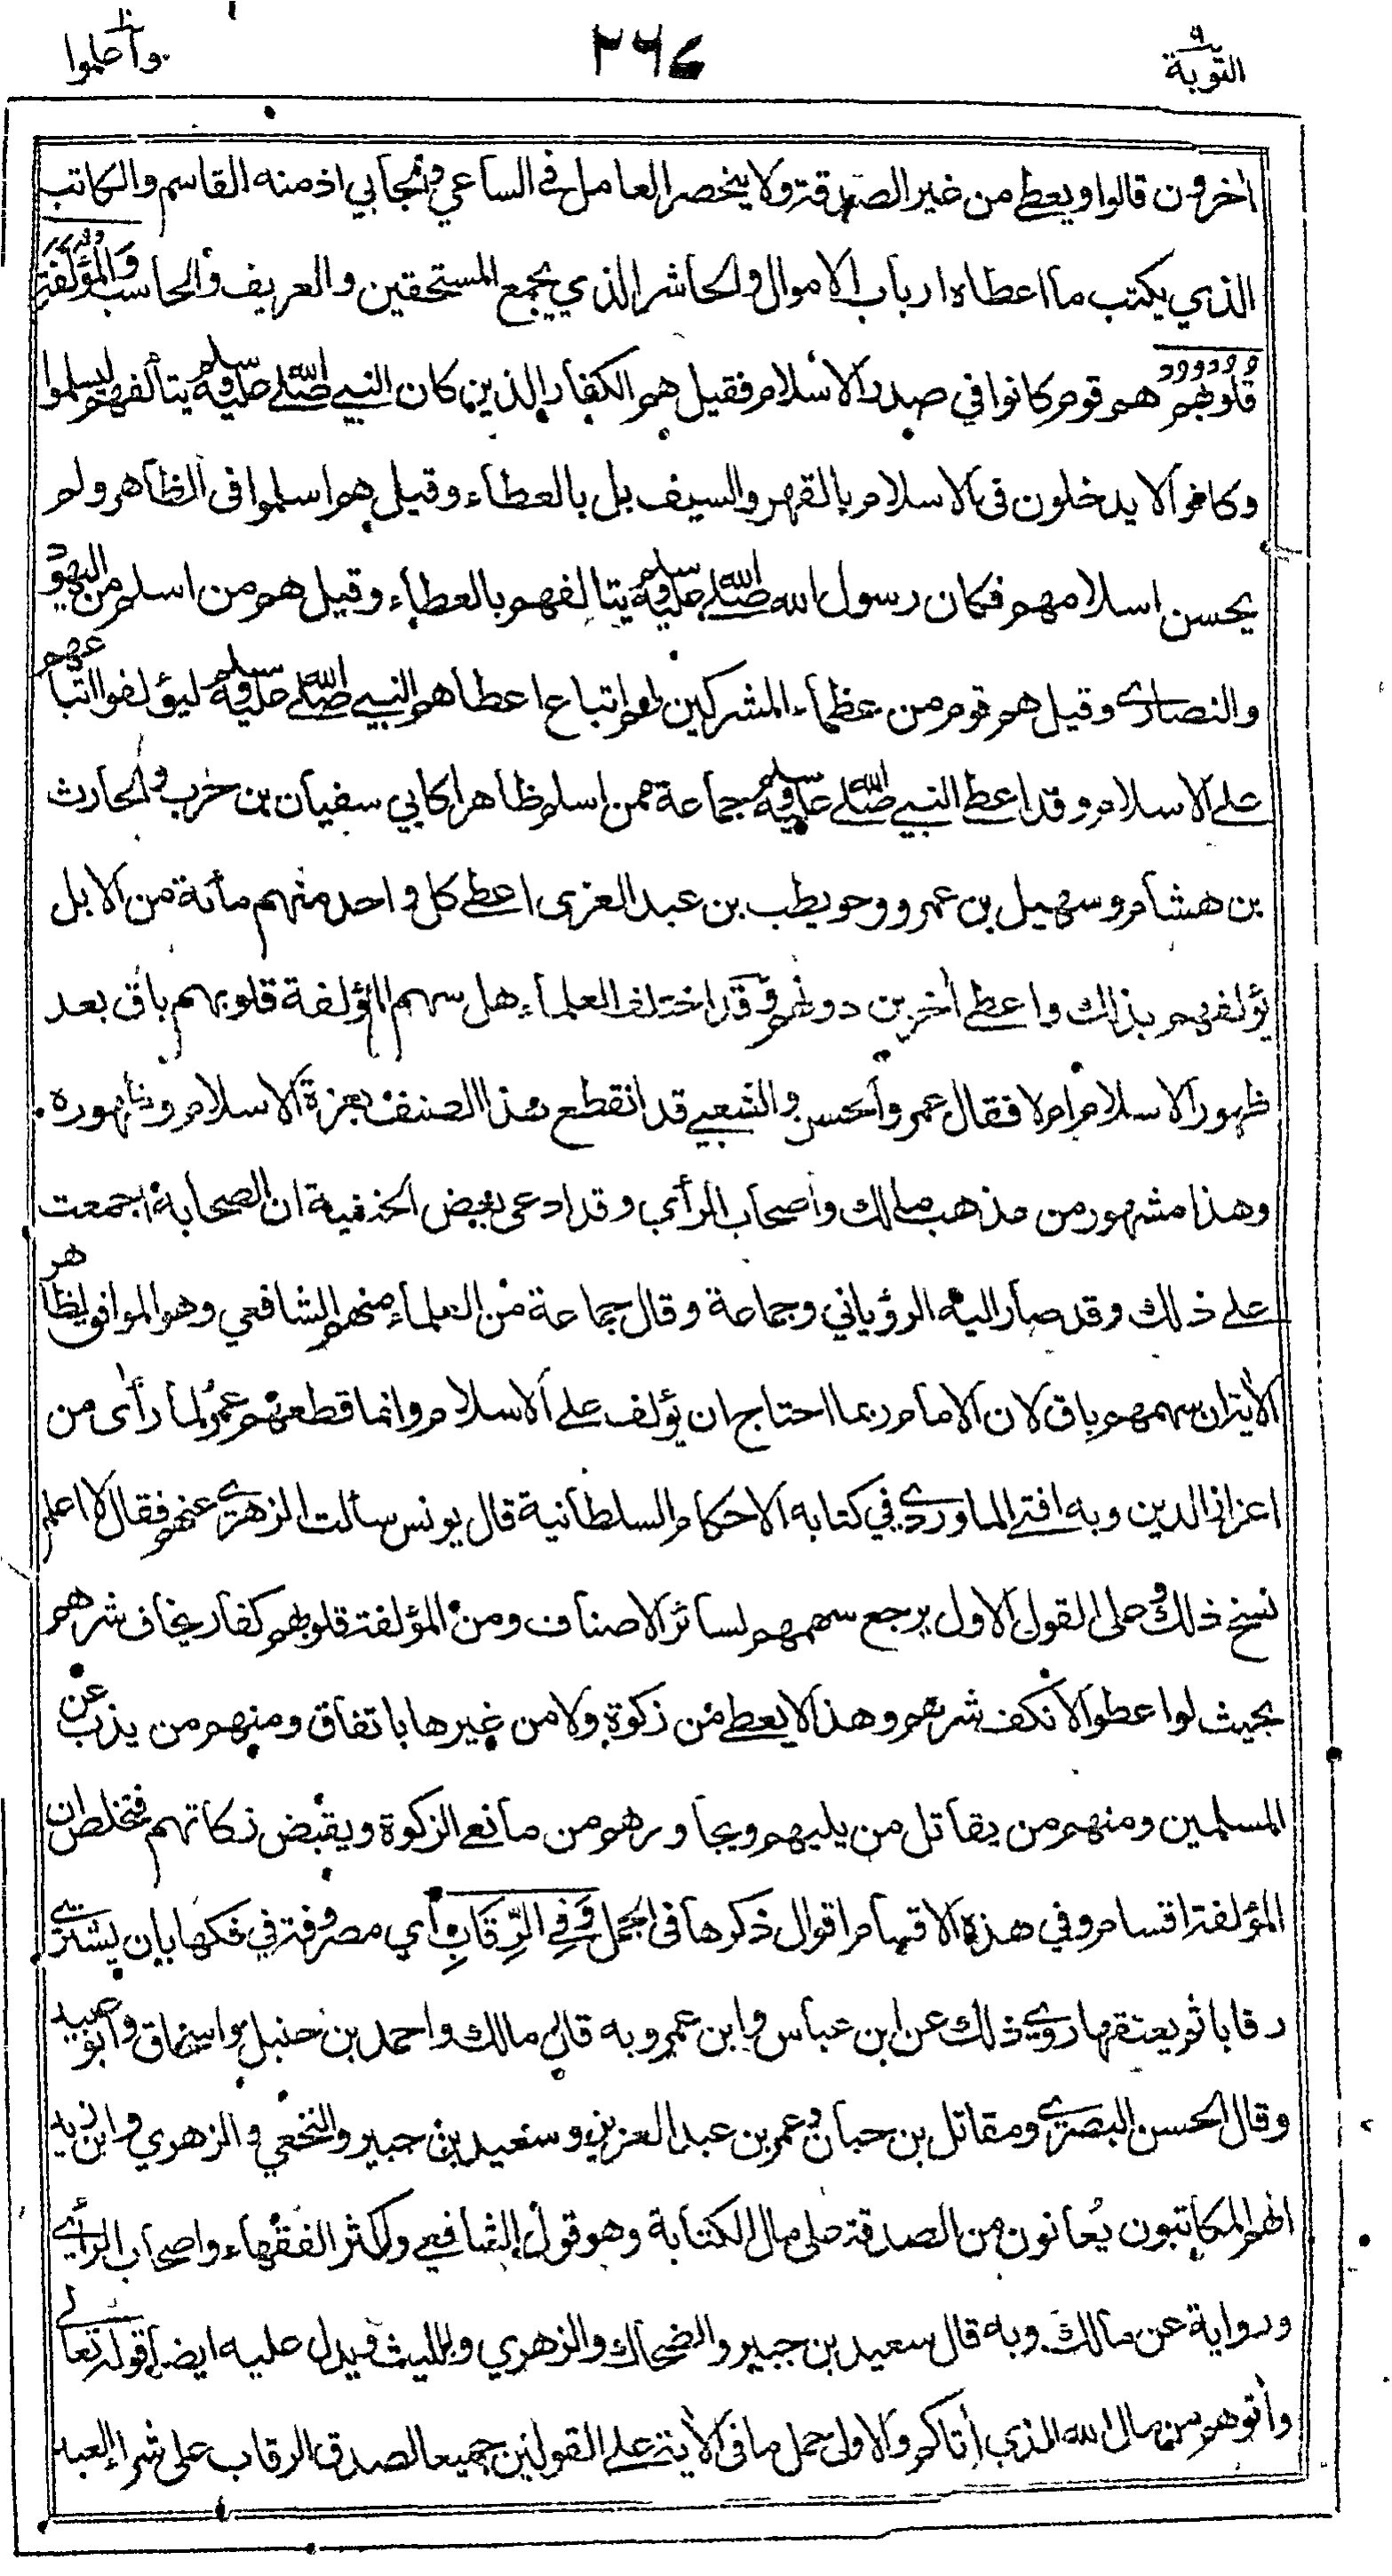 التوبة ٩
٢٦٤
واعلموا
اخرون قالوا ويعطى من غير الصدقة ولا ينحصر العامل في الساعي والجابي اذ منه القاسم والكاتب
الذي يكتب ما اعطاه ارباب الاموال والحاشر الذي يجمع المستحقين والعريف والحاسب وَالْمُؤَلَّفَةِ
قلوبهم هم قوم كانوا في صدر الاسلام فقيل هم الكفار الذين كان النبي صلى الله عليه وسلم يتألفهم ليسلموا
وكانوا لا يدخلون في الاسلام بالقهر والسيف بل بالعطاء وقيل هم اسلموا في الظاهر ولم
يحسن اسلامهم فكان رسول الله صلى الله عليه وسلم يتالفهم بالعطاء وقيل هم من اسلم من اليهود
والنصارى وقيل هم قوم من عظماء المشركين لهم اتباع اعطاهم النبي صلى الله عليه وسلم ليؤلفوا اتباعهم
على الاسلام وقد اعطى النبي صلى الله عليه وسلم جماعة ممن اسلم ظاهرا كابي سفيان بن حرب والحارث
بن هشام وسهيل بن عمرو وحويطب بن عبد العزى اعطى كل واحد منهم مأئة من الابل
يؤلفهم بذلك واعطى اخرين دونهم وقد اختلف العلماء هل سهم المؤلفة قلوبهم باق بعد
ظهور الاسلام ام لا فقال عمر والحسن والشعبي قد انقطع هذا الصنف بعزة الاسلام وظهوره
وهذا مشهور من مذهب مالك واصحاب الرأي وقد ادعى بعض الحنفية ان الصحابة اجمعت
على ذلك وقد صار اليه الرؤياني وجماعة وقال جماعة من العلماء منهم الشافعي وهو الموافق لظاهر
الأية ان سهمهم باق لان الامام ربما احتاج ان يؤلف على الاسلام وانما قطعهم عمر لما رأى من
اعزاز الدين وبه افتى الماوردي في كتابه الاحكام السلطانية قال يونس سألت الزهري عنهم فقال لا اعلم
نسخ ذلك وعلى القول الاول يرجع سهمهم لسائر الاصناف ومن المؤلفة قلوبهم كفار يخاف شرهم
بحيث لو اعطوا لانكف شرهم وهذا لا يعطى من زكوة ولا من غيرها باتفاق ومنهم من يذب عن
المسلمين ومنهم من يقاتل من يليهم ويجاورهم من مانعي الزكوة ويقبض زكاتهم فتخلص ان
المؤلفة اقسام وفي هذه الاقسام اقوال ذكرها في الجمل وَفِي الرِّقَابِ أي مصروفة في فكها بان يشتري
رقابا ثم يعتقها روي ذلك عن ابن عباس وابن عمر وبه قال مالك واحمد بن حنبل واسحاق وابو عبيد
وقال الحسن البصري ومقاتل بن حبان وعمر بن عبد العزيز وسعيد بن جبير والنخعي والزهري وابن زيد
انهم المكاتبون يُعانون من الصدقة على مال الكتابة وهو قول الشافعي واكثر الفقهاء واصحاب الرأي
ورواية عن مالك وبه قال سعيد بن جبير والضحاك والزهري والليث ويدل عليه ايضا قوله تعالى
وأتوهم من مال الله الذي أتاكم والاولى حمل ما في الأية على القولين جميعا لصدق الرقاب على شراء العبد